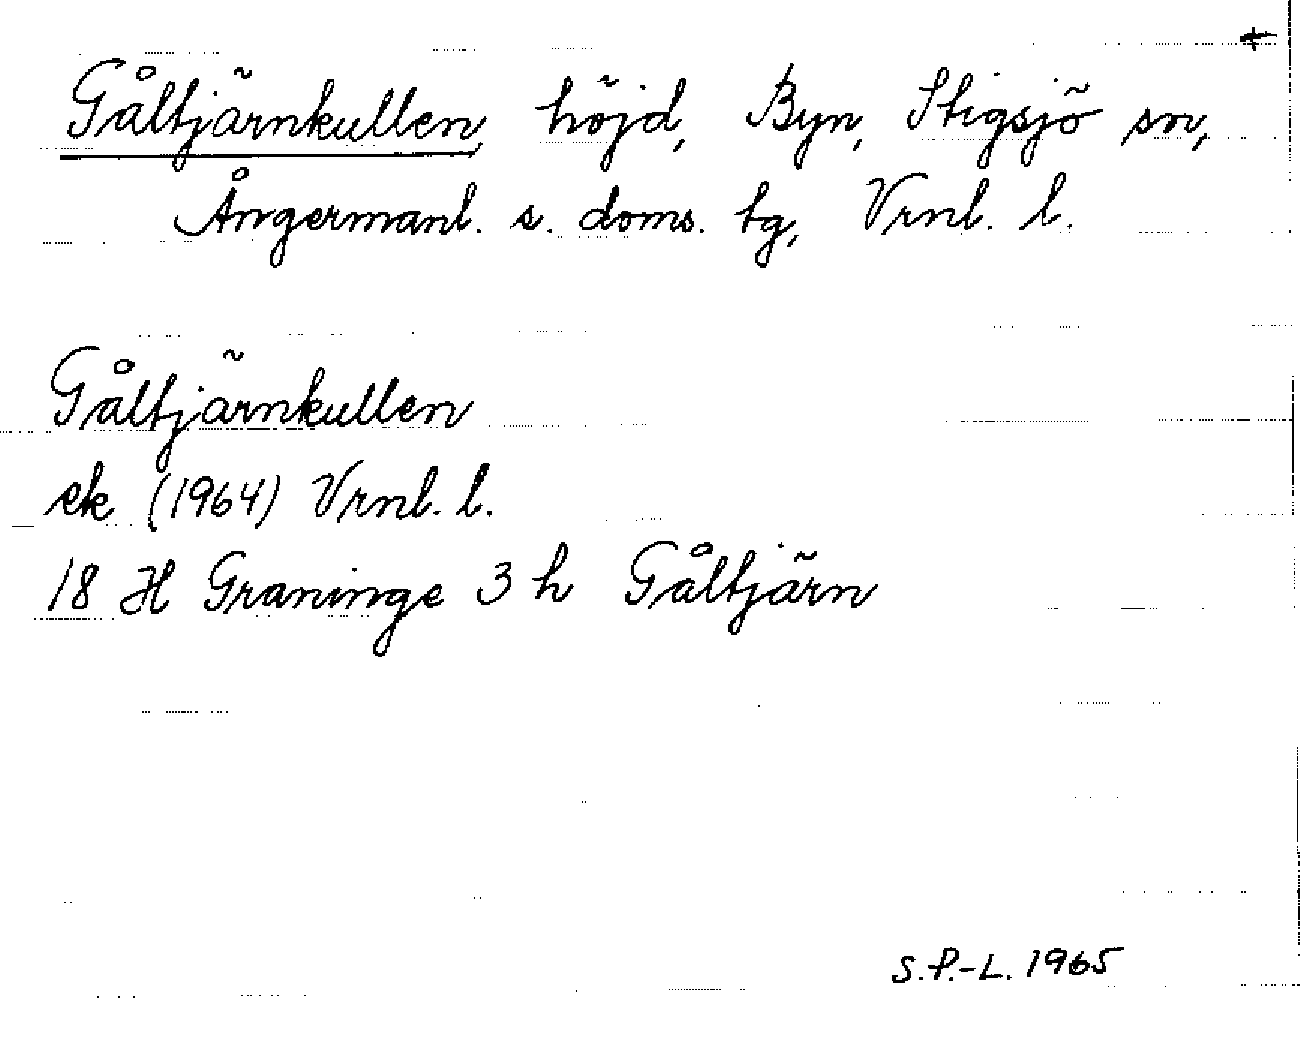 +
Gåltjärnkullen, höjd, Byn, Stigsjö sn,
Ångermanl. s. doms. tg, Vrnl. l.
Gåltjärnkullen
ek (1964) Vrnl. l.
18 H Graninge 3 h Gåltjärn
S.P.-L. 1965